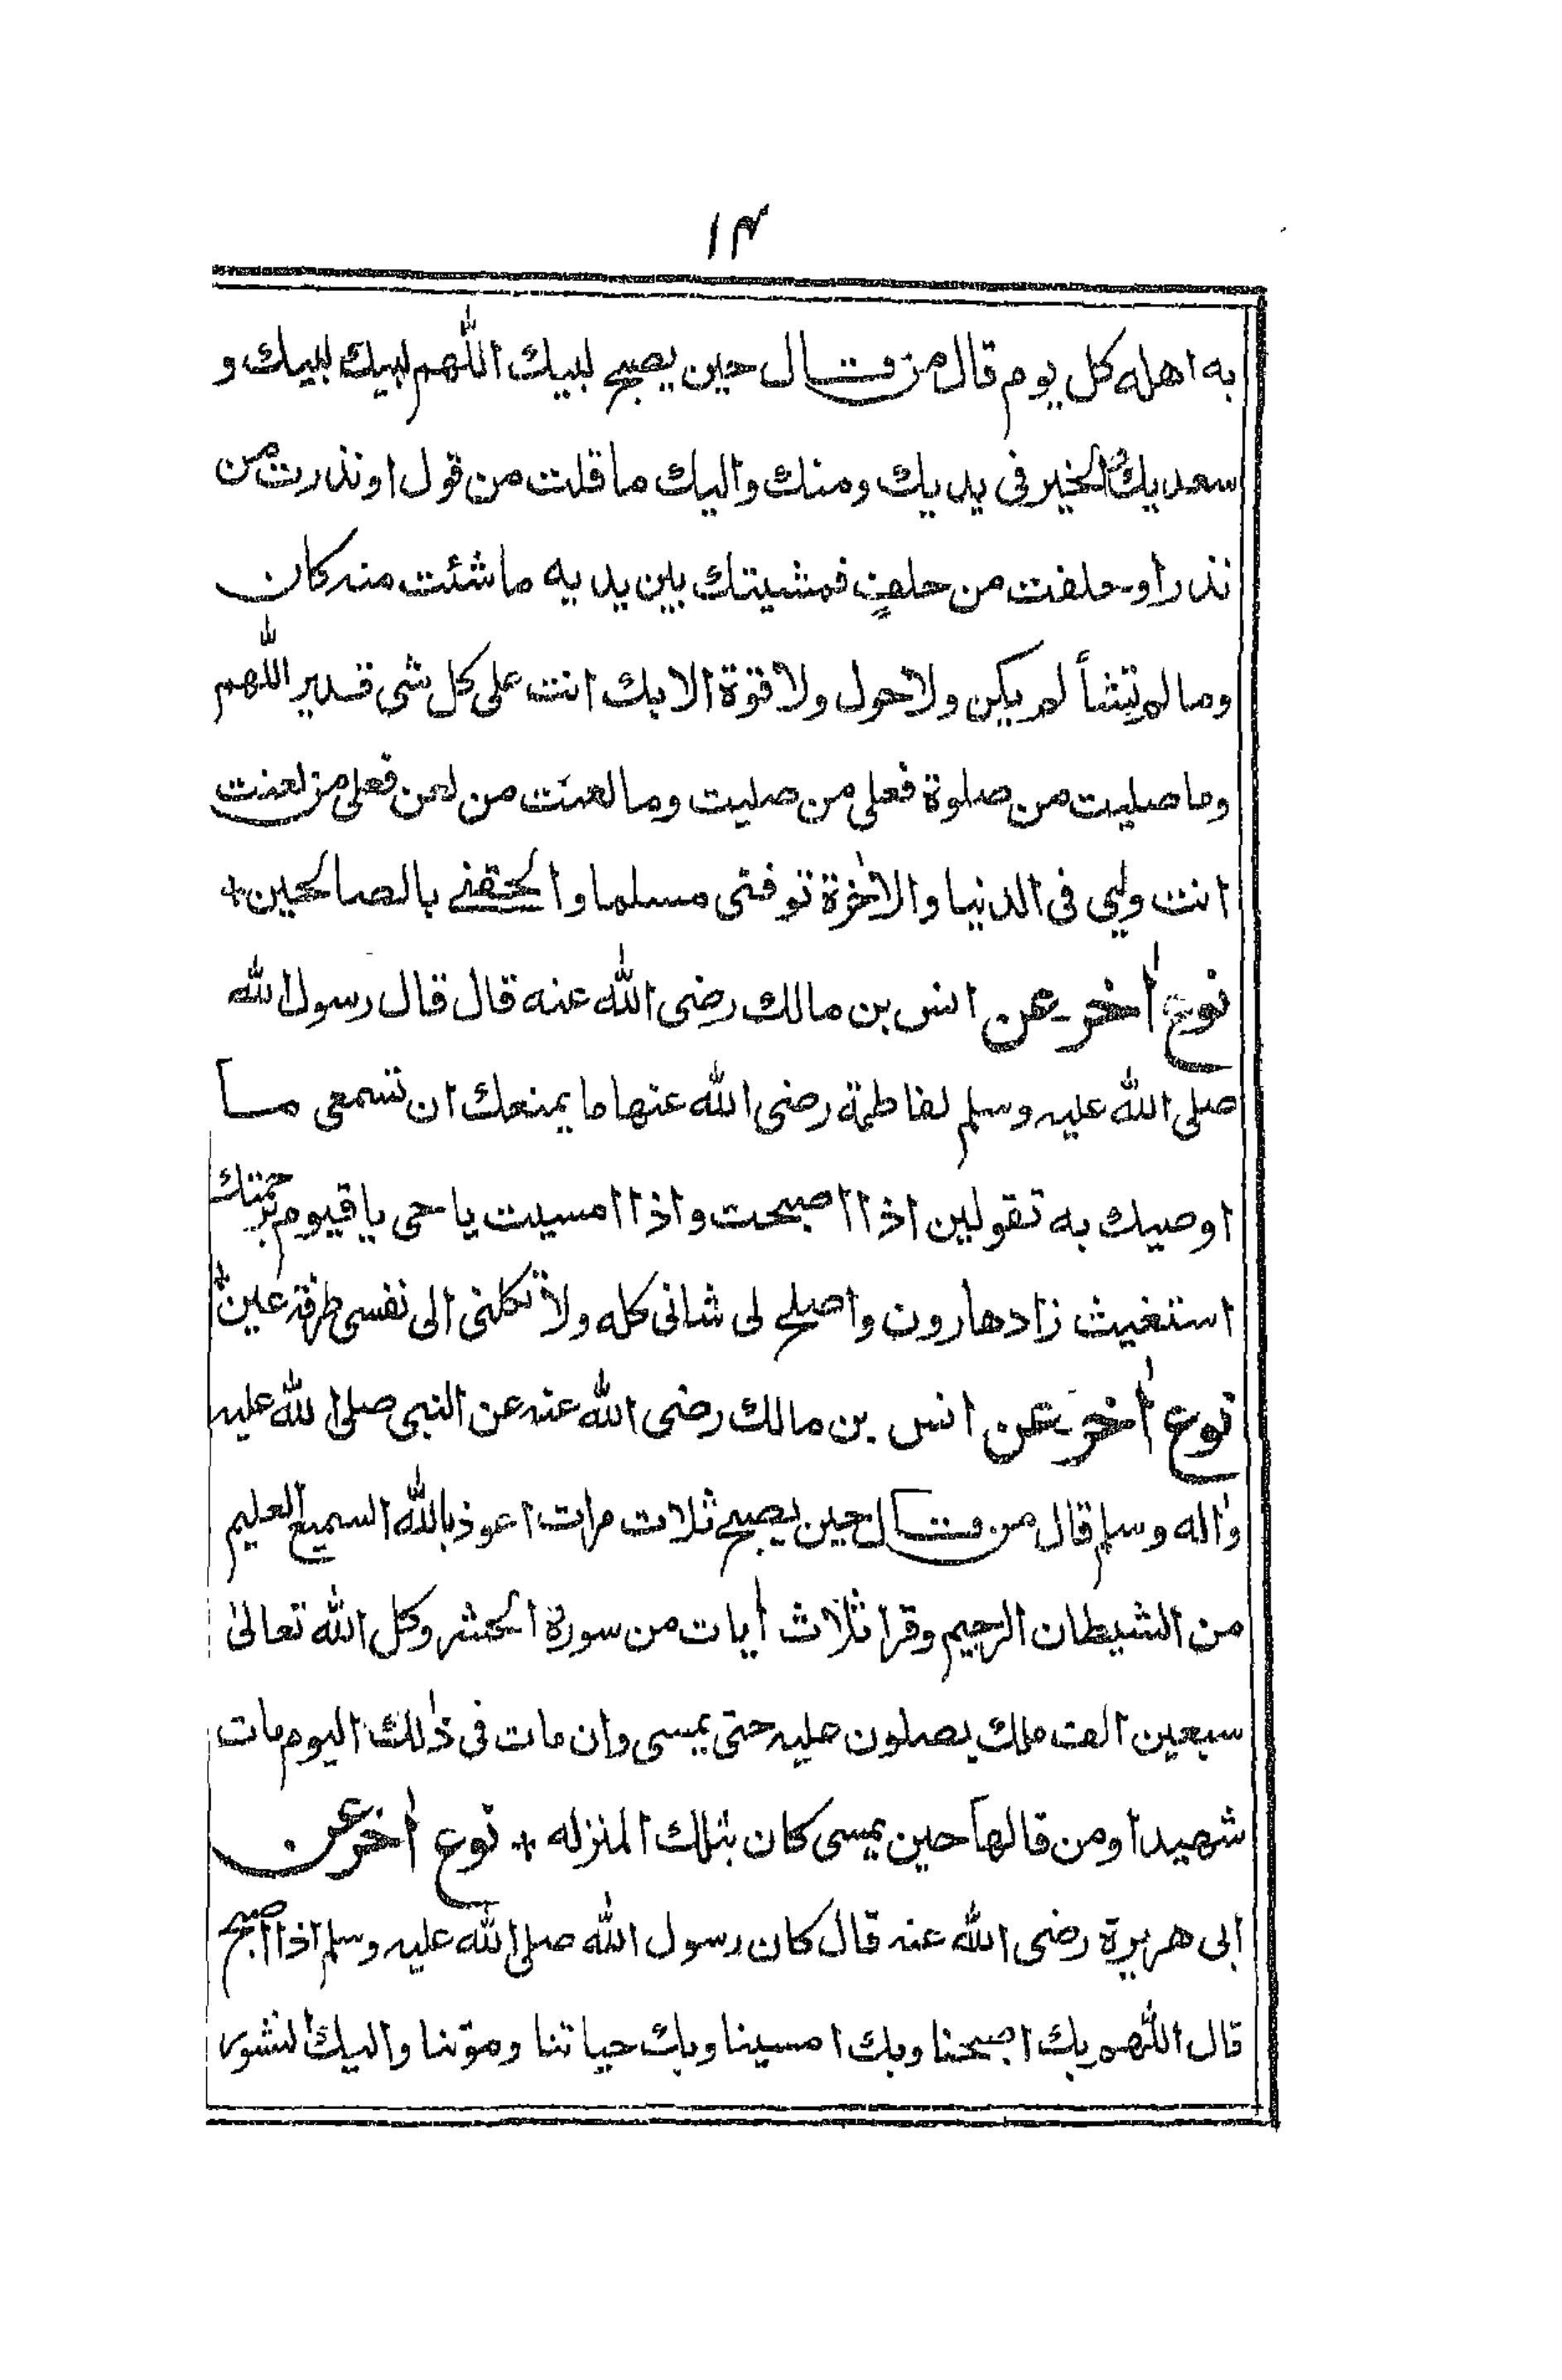 ١٣
به اهله كل يوم قال من قال حين يصبح لبيك اللهم لبيك لبيك و
سعديك والخير فى يديك ومنك واليك ما قلت من قول او نذرت من
نذر او حلفت من حلف فمشيتك بين يديه ما شئت منه كان
وما لم تشأ لم يكن ولا حول ولا قوة الا بك انت على كل شى قدير اللهم
وما صليت من صلوة فعلى من صليت وما لعنت من لعن فعلى من لعنت
انت وليى فى الدنيا والاٰخرة توفنى مسلما والحقنے بالصالحين +
نوع اٰخر عن انس بن مالك رضى الله عنه قال قال رسول الله
صلى الله عليه وسلم لفاطمة رضى الله عنها ما يمنعك ان تسمعى ما
اوصيك به تقولين اذا اصبحت واذا امسيت يا حى يا قيوم برحمتك
استغيث زاد هارون واصلح لى شانى كله ولا تكلنى الى نفسى طرفة عين +
نوع اٰخر عن انس بن مالك رضى الله عنه عن النبى صلى الله عليه
واٰله وسلم قال من قال حين يصبح ثلات مرات اعوذ بالله السميع العليم
من الشيطان الرجيم وقرا ثلاث اٰيات من سورة الحشر وكل الله تعالىٰ
سبعين الف ملك يصلون عليه حتى يمسى وان مات فى ذٰلك اليوم مات
شهيدا ومن قالها حين يمسى كان بتلك المنزله + نوع اٰخر عن
ابى هريرة رضى الله عنه قال كان رسول الله صلى الله عليه وسلم اذا اصبح
قال اللهم بك اصبحنا وبك امسينا وبك حياتنا وموتنا واليك النشور